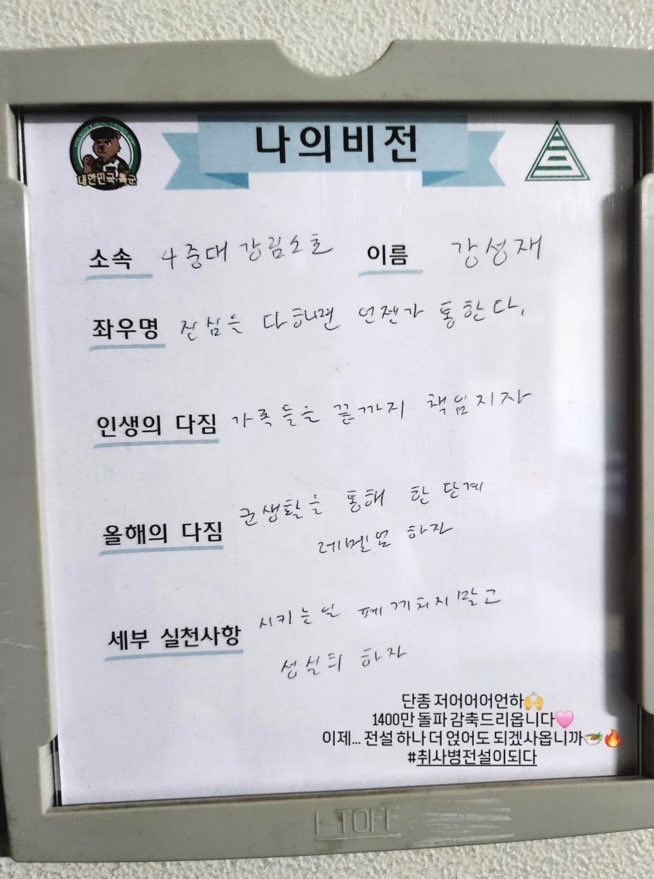 나의비전
대한민국 육군
소속 4중대 강림소초 이름 강성재
좌우명 진심을 다하면 언젠가 통한다.
인생의 다짐 가족들을 끝까지 책임지자
올해의 다짐 군생활을 통해 한 단계
레벨업 하자
세부 실천사항 시키는일 깨지말고
성실히 하자
단종 저어어어언하🙌
1400만 돌파 감축드리옵니다🩷
이제... 전설 하나 더 얹어도 되겠사옵니까🍲🔥
#취사병전설이되다